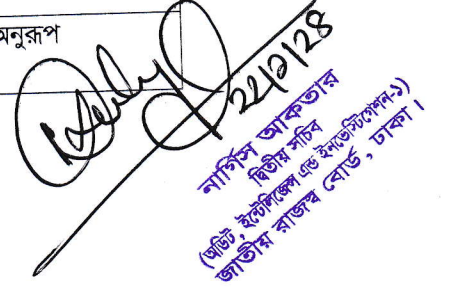 অনুরূপ
২২/১/২৪
নার্গিস আকতার
দ্বিতীয় সচিব
(অডিট, ইন্টেলিজেন্স এন্ড ইনভেস্টিগেশন-১)
জাতীয় রাজস্ব বোর্ড, ঢাকা।